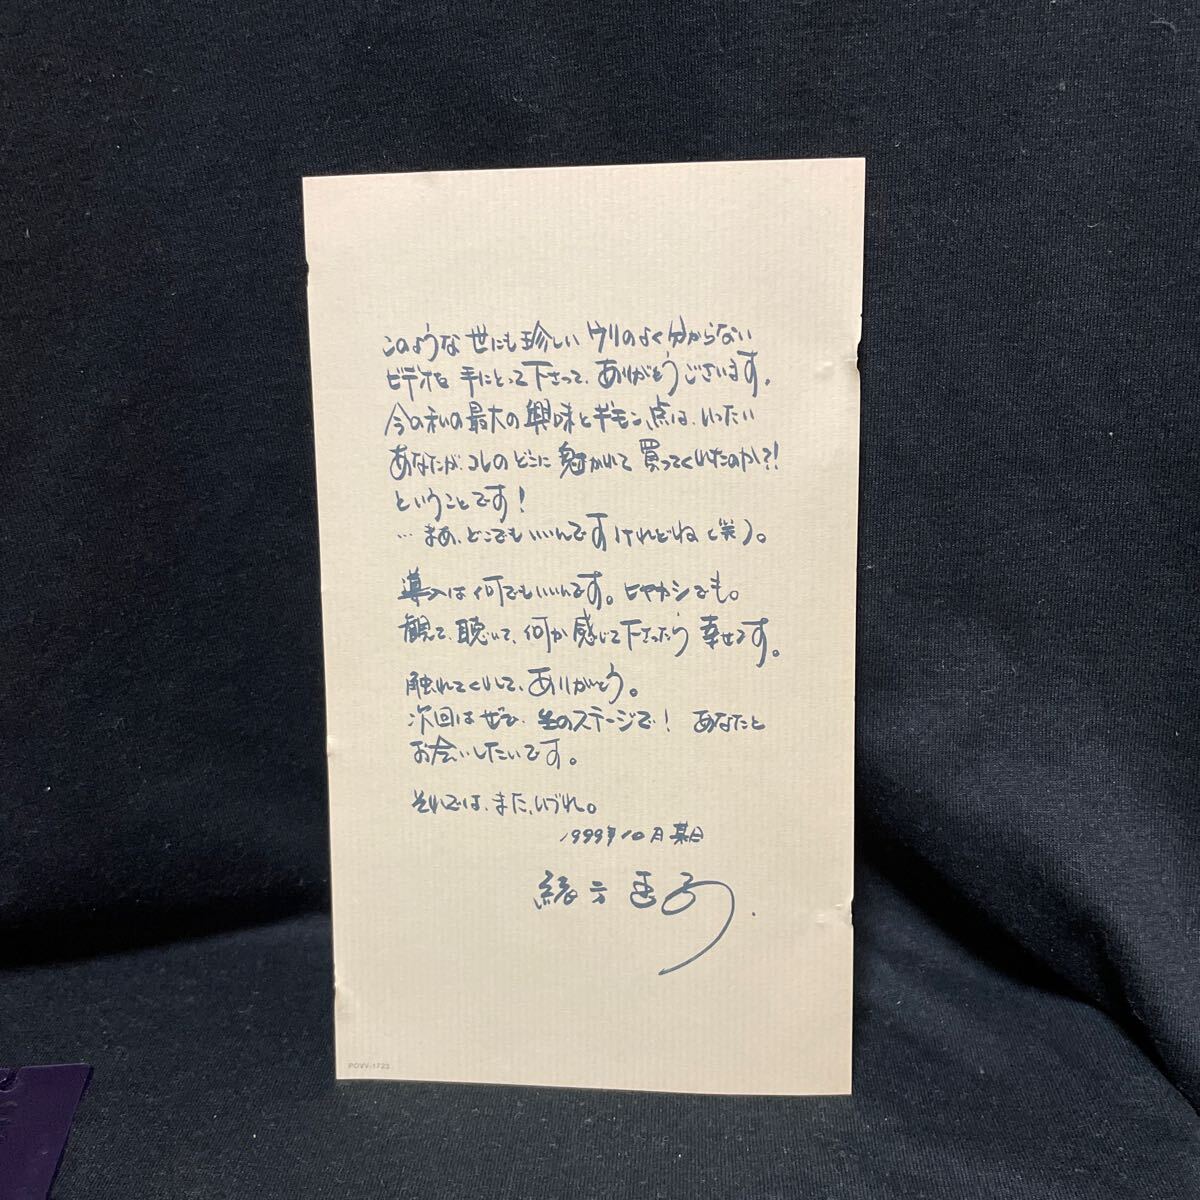 このような世にも珍しいウリのよく分からない
ビデオを手にとって下さって、ありがとうございます。
今の私の最大の興味とギモン点は、いったい
あなたが、コレのどこに魅かれて買ってくれたのか?!
ということです!
…まあ、どこでもいいんですけれどね(笑)。
導入は何でもいいんです。ヒヤカシでも。
観て、聴いて、何か感じて下さったら幸せです。
触れてくれて、ありがとう。
次回はぜひ、生のステージで! あなたと
お会いしたいです。
それでは、また、いづれ。
1999年10月某日
緒方恵美
POVV-1723